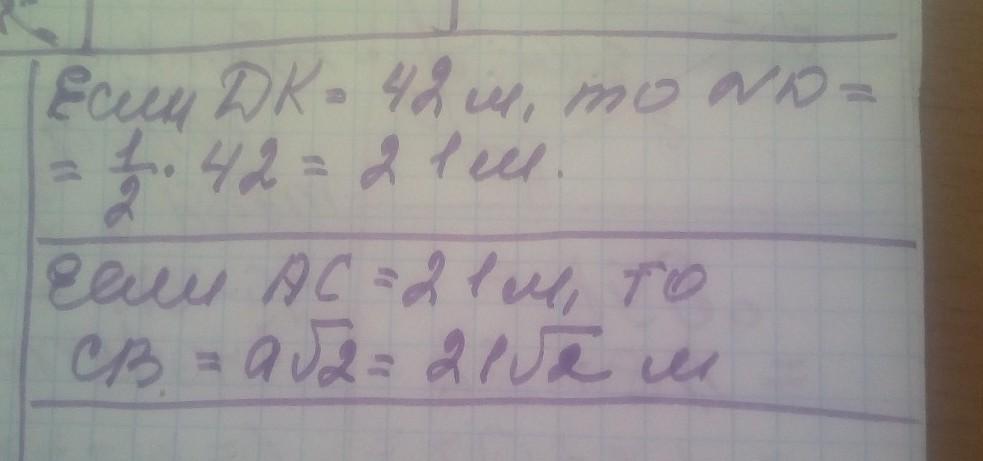 Если DK = 42 м, то ND =
= 1/2 · 42 = 21 м.
Если AC = 21 м, то
CB = a√2 = 21√2 м